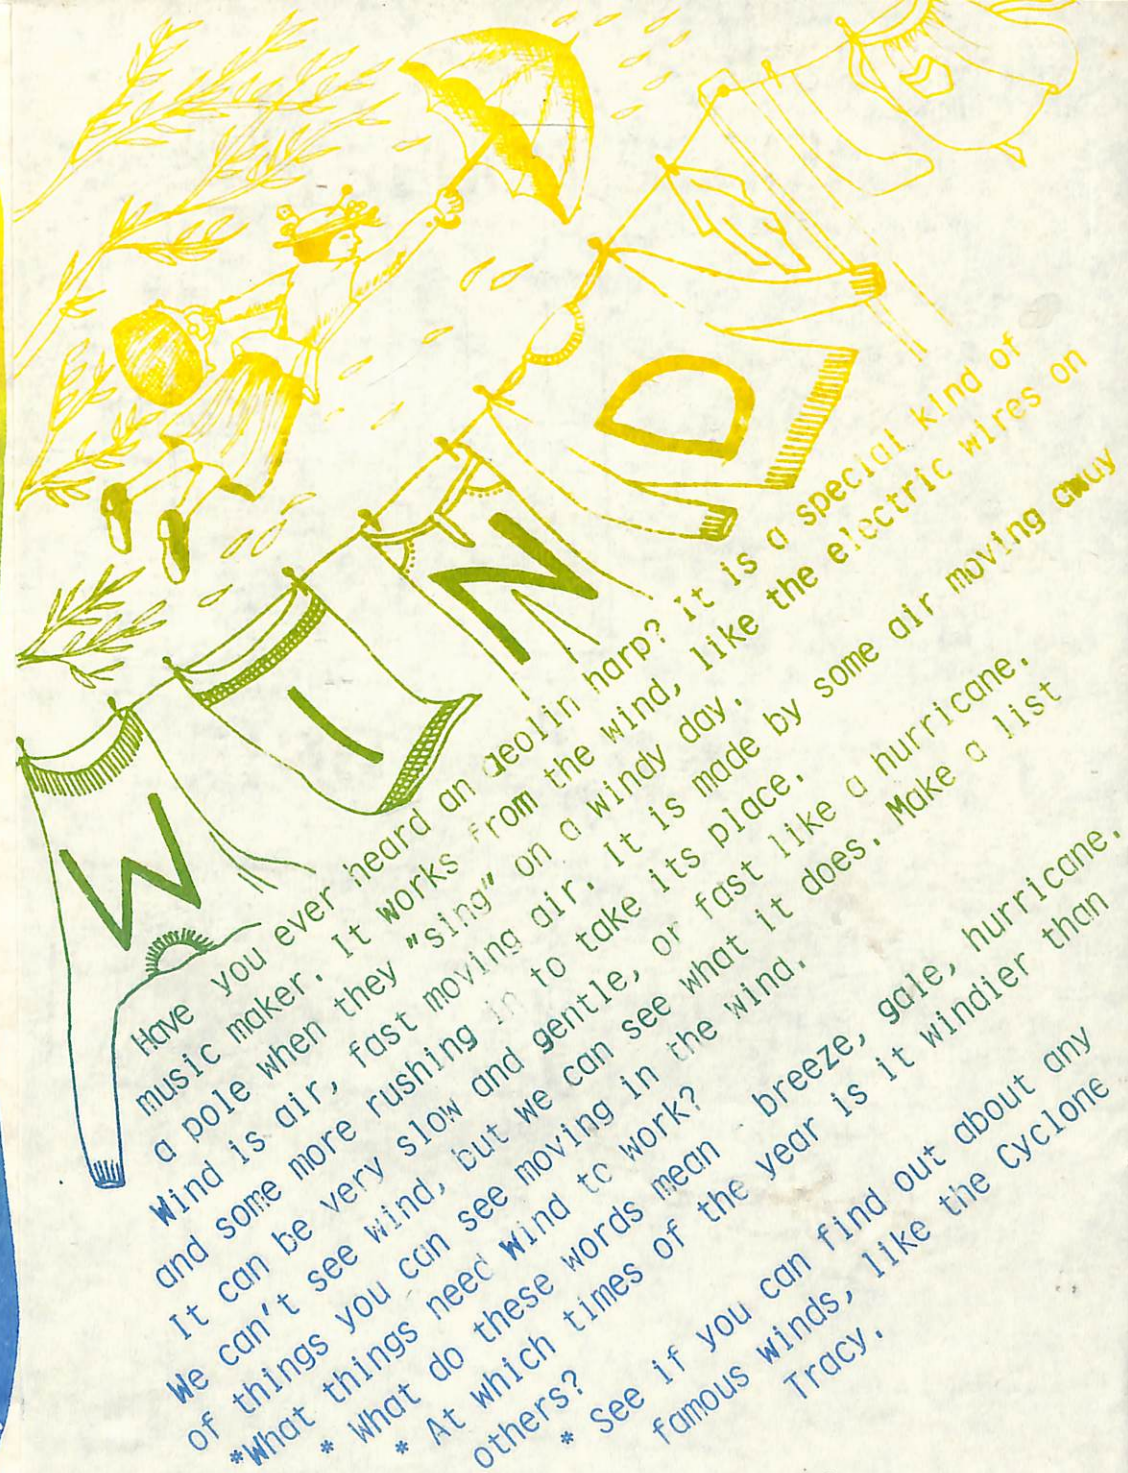 WIND
Have you ever heard an aeolin harp? It is a special kind of
music maker. It works from the wind, like the electric wires on
a pole when they "sing" on a windy day.
Wind is air, fast moving air. It is made by some air moving away
and some more rushing in to take its place.
It can be very slow and gentle, or fast like a hurricane.
We can't see wind, but we can see what it does. Make a list
of things you can see moving in the wind.
*What things need wind to work?
* What do these words mean breeze, gale, hurricane.
* At which times of the year is it windier than
others?
* See if you can find out about any
famous winds, like the Cyclone
Tracy.